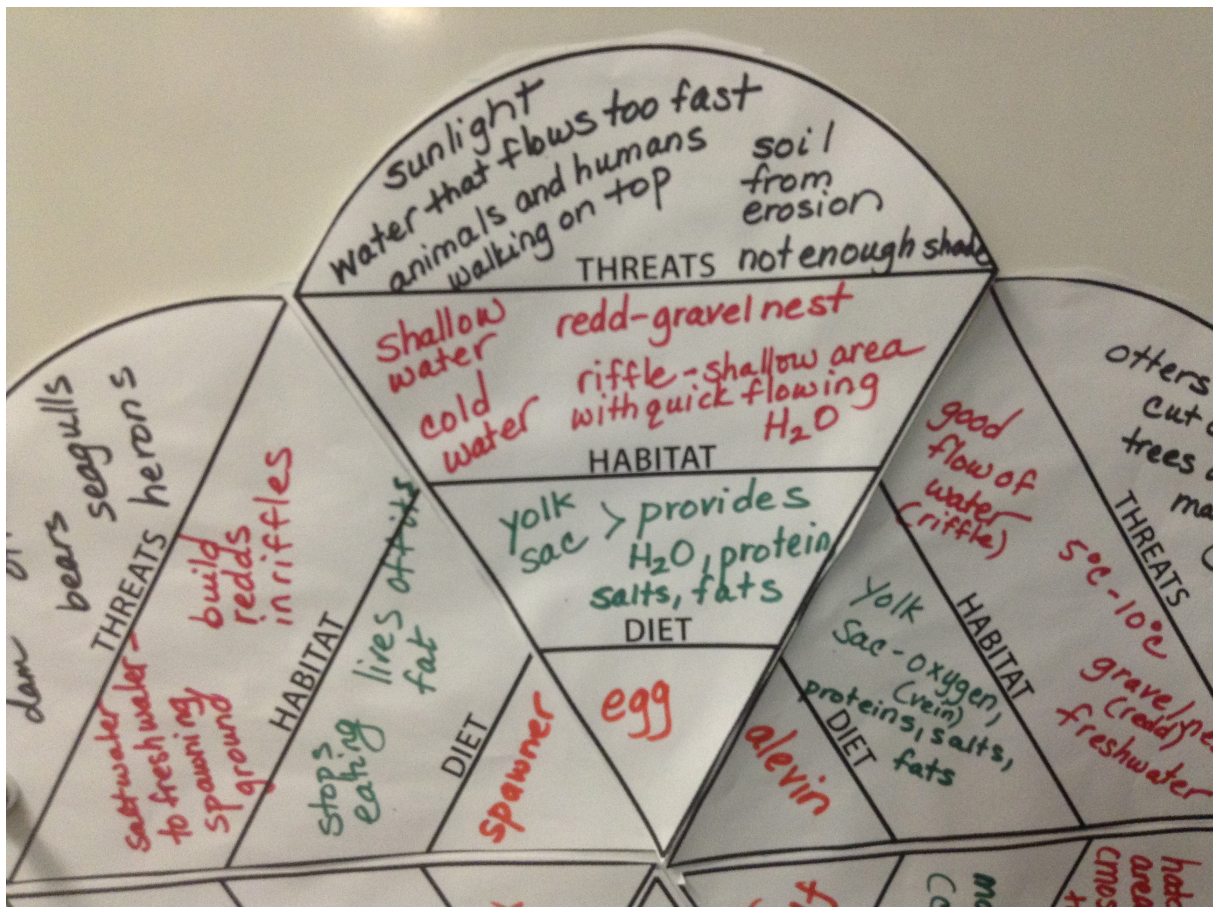 sunlight
water that flows too fast
animals and humans
walking on top
soil
from
erosion
not enough shade
THREATS
shallow
water
cold
water
redd-gravel nest
riffle-shallow area
with quick flowing
H₂O
HABITAT
yolk
sac > provides
H₂O, protein
salts, fats
DIET
egg
dam
bears
seagulls
herons
THREATS
saltwater-
to freshwater
spawning
ground
build
redds
in riffles
HABITAT
stops
eating
lives off its
fat
DIET
spawner
otters
cut
trees
THREATS
good
flow of
water
(riffle)
5°C-10°C
gravel
(redd)
freshwater
HABITAT
yolk
sac-oxygen,
(vein)
proteins, salts,
fats
DIET
alevin